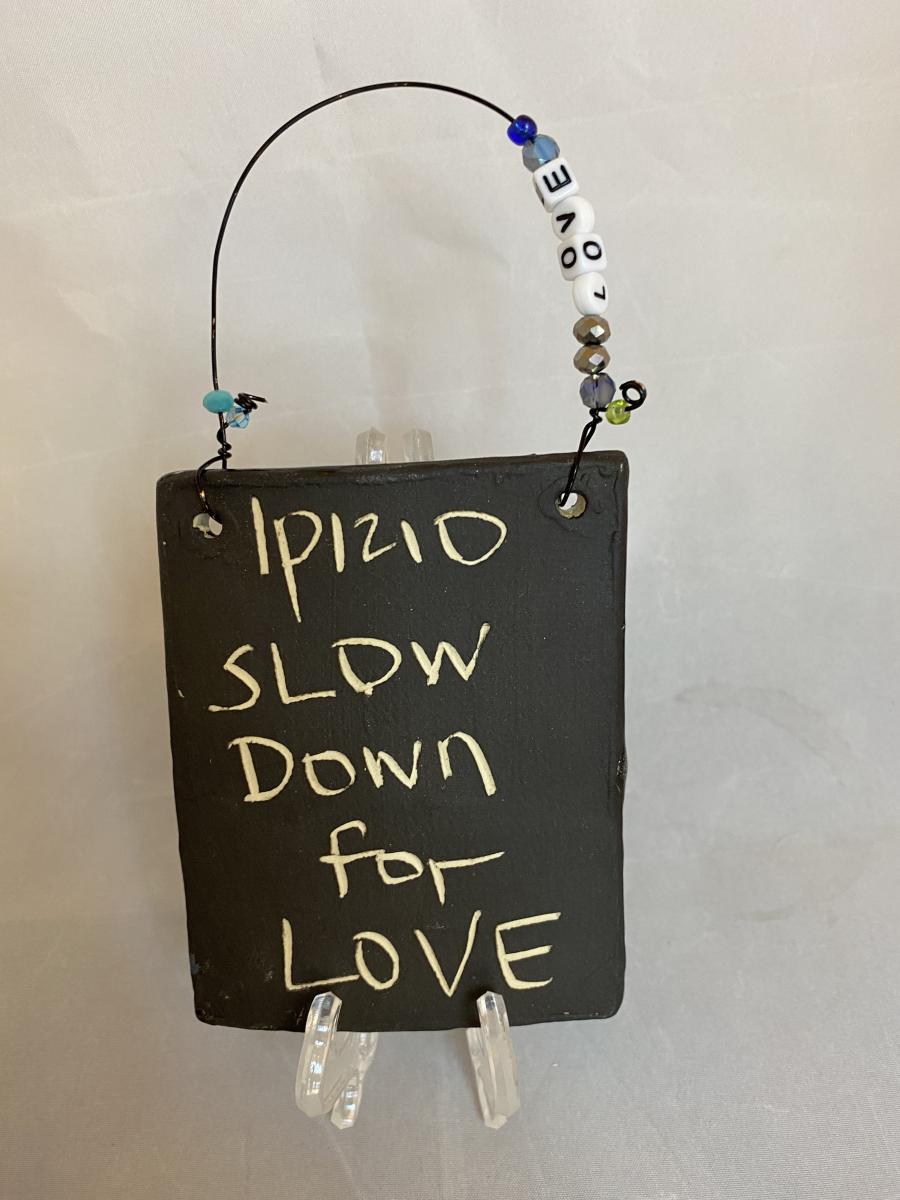 LOVE
IPIZIO
SLOW
DOWn
for
LOVE